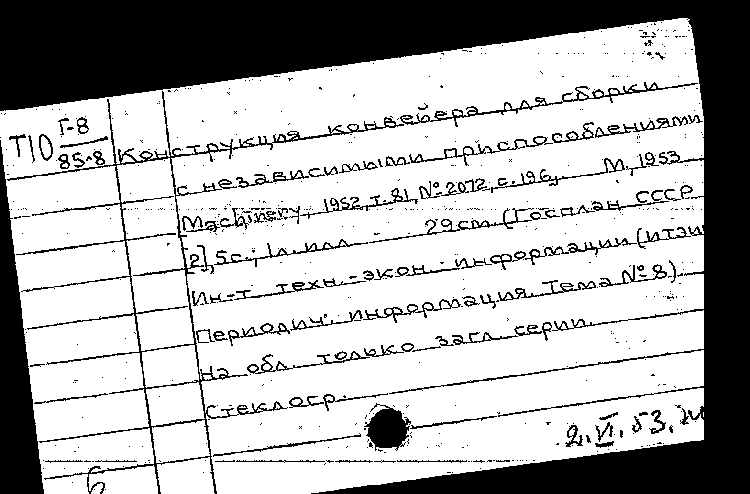 Т10 Г-8
85-8
Конструкция конвейера для сборки
с независимыми приспособлениями
Machinery, 1952, т. 81, № 2072, с. 196, М., 1953
[2], 5с.; 1л. илл. 29 см. (Госплан СССР
Ин-т техн.-экон. информации (ИТЭИ
Периодич. информация. Тема № 8)
На обл. только загл. серии.
Стеклогр.
2.VI.53.
б